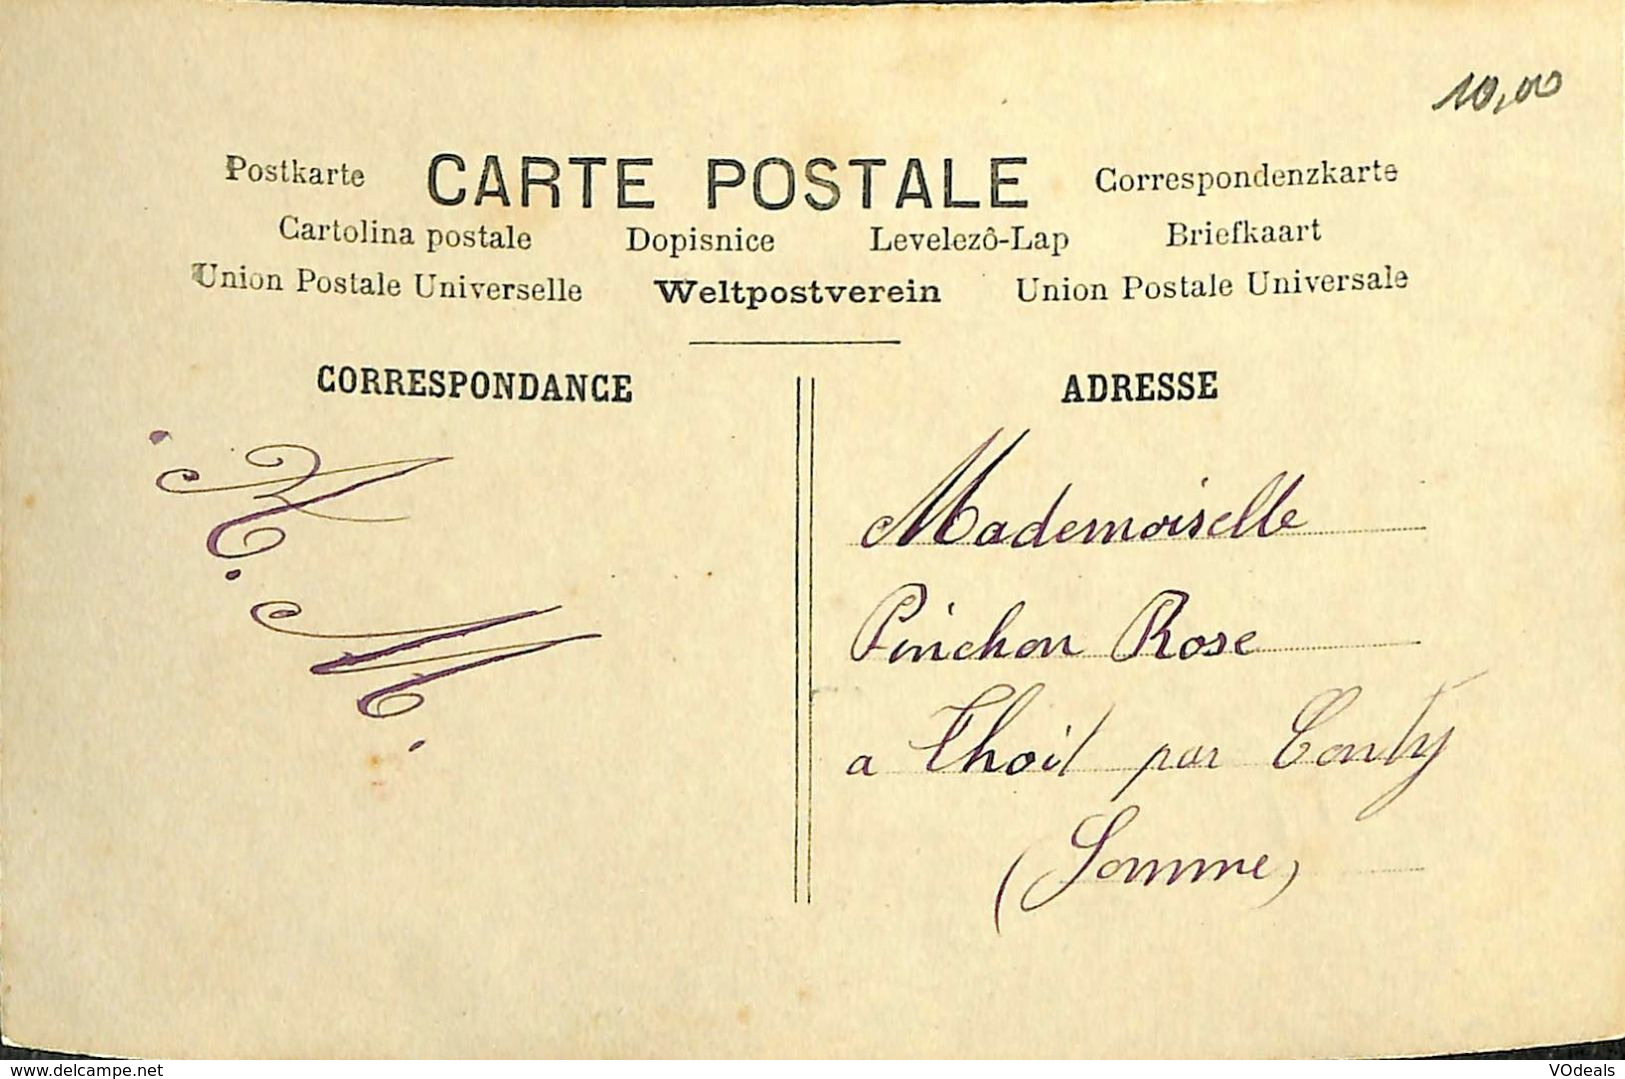 10,00
Postkarte CARTE POSTALE Correspondenzkarte
Cartolina postale Dopisnice Levelezô-Lap Briefkaart
Union Postale Universelle Weltpostverein Union Postale Universale
CORRESPONDANCE
M.
ADRESSE
Mademoiselle
Pinchon Rose
a Thoil par Conty
(Somme)
www.delcampe.net
VOdeals